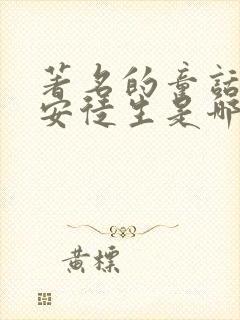 著名的童話
安徒生是哪
黃標